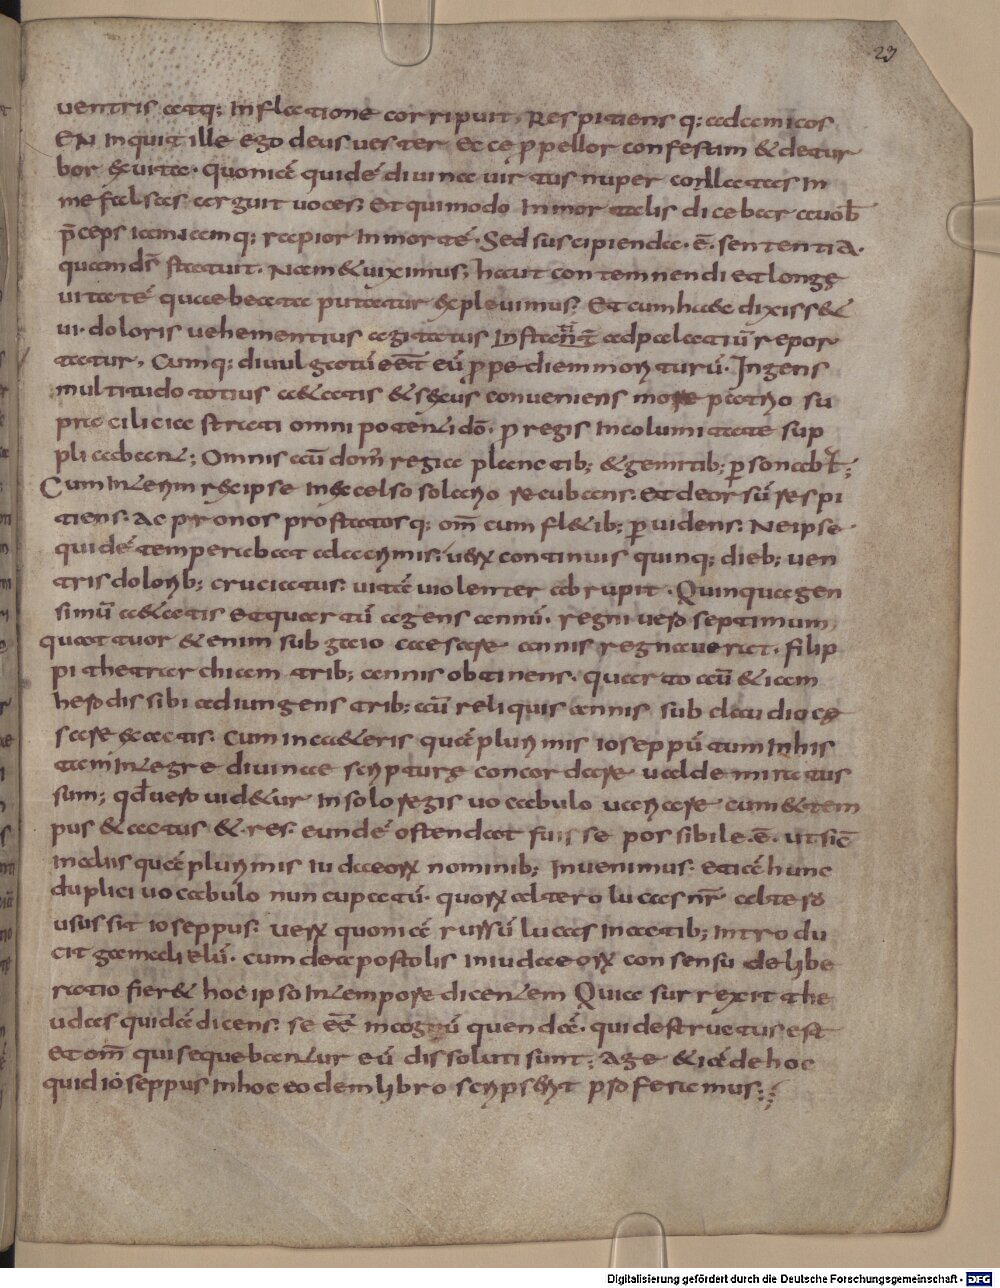 23
ventris atq; inflatione corripuit. Respitiens q; ad amicos
EN inquit ille ego deus vester Ecce ꝓpellor confestim & detur
bor & vita. quoniā quidē divina virtus nuper conllatas in
me falsas arguit voces; Et qui modo inmortalis dicebar a vob̄
p̄ceps iam iamq; rapior in mortē. Sed suscipienda .ē. sententia.
quam dš statuit. Nam & viximus; haut contemnendi et longę
vitatē quae beata putatur explevimus; Et cum haec dixiss&
vi. doloris vehementius agitatus instan̄t ad palatiū repor
tatur. Cumq; divulgatū eēt eū ꝓpe diem moriturū. Ingens
multitudo totius aetatis & sexus conveniens more patrio su
pra cilicia strati omnipotentē dō. ꝓ regis incolumitate sup
plicabant; Omnis aū dom̄ regia planctib; & gemitib; ꝑsonabt;
Cum interim rex ipse in excelso solario recubans. Et deorsū respi
tiens. Ac pronos prostratosq; om̄ cum fl&ib; ꝑvidens. Ne ipse
quidē temperabat a lacrimis. verum continuis quinq; dieb; ven
tris dolorib; cruciatus. vitā violenter abrupit. Quinquagen
simū aetatis Et quartū agens annū. regni vero septimum
quattuor & enim sub gaio caesare annis regnaverat. filip
pi thetrarchiam trib; annis obtinens. quarto aū & iam
herodis sibi adiungens trib; aū reliquis annis sub claudio cę
sare exactis. Cum in caeteris quā plurimis ioseppū tum in his
tam integre divinae scripturę concordare valde miratus
sum; qđ vero videtur in solo regis vocabulo variare cum & tem
pus & actus & res. eundē ostendat fuisse possibile .ē. ut sic̄
in aliis quā plurimis iudaeorum nominib; invenimus. Etiā hunc
duplici vocabulo nuncupatū. quorum altero lucas nr̄ altero
usus sit ioseppus. verum quoniā rursū lucas in actib; introdu
cit gamalielū. cum de apostolis in iudaeorum consensu delibe
ratio fier& hoc ipso in tempore dicentem Quia surrexit the
udas quidā dicens. se eē magnū quendā. qui destructus est
Et om̄ qui sequebantur eū dissoluti sunt; Age & iā de hoc
quid ioseppus in hoc eodem libro scripserit proferamus:;
Digitalisierung gefördert durch die Deutsche Forschungsgemeinschaft - DFG